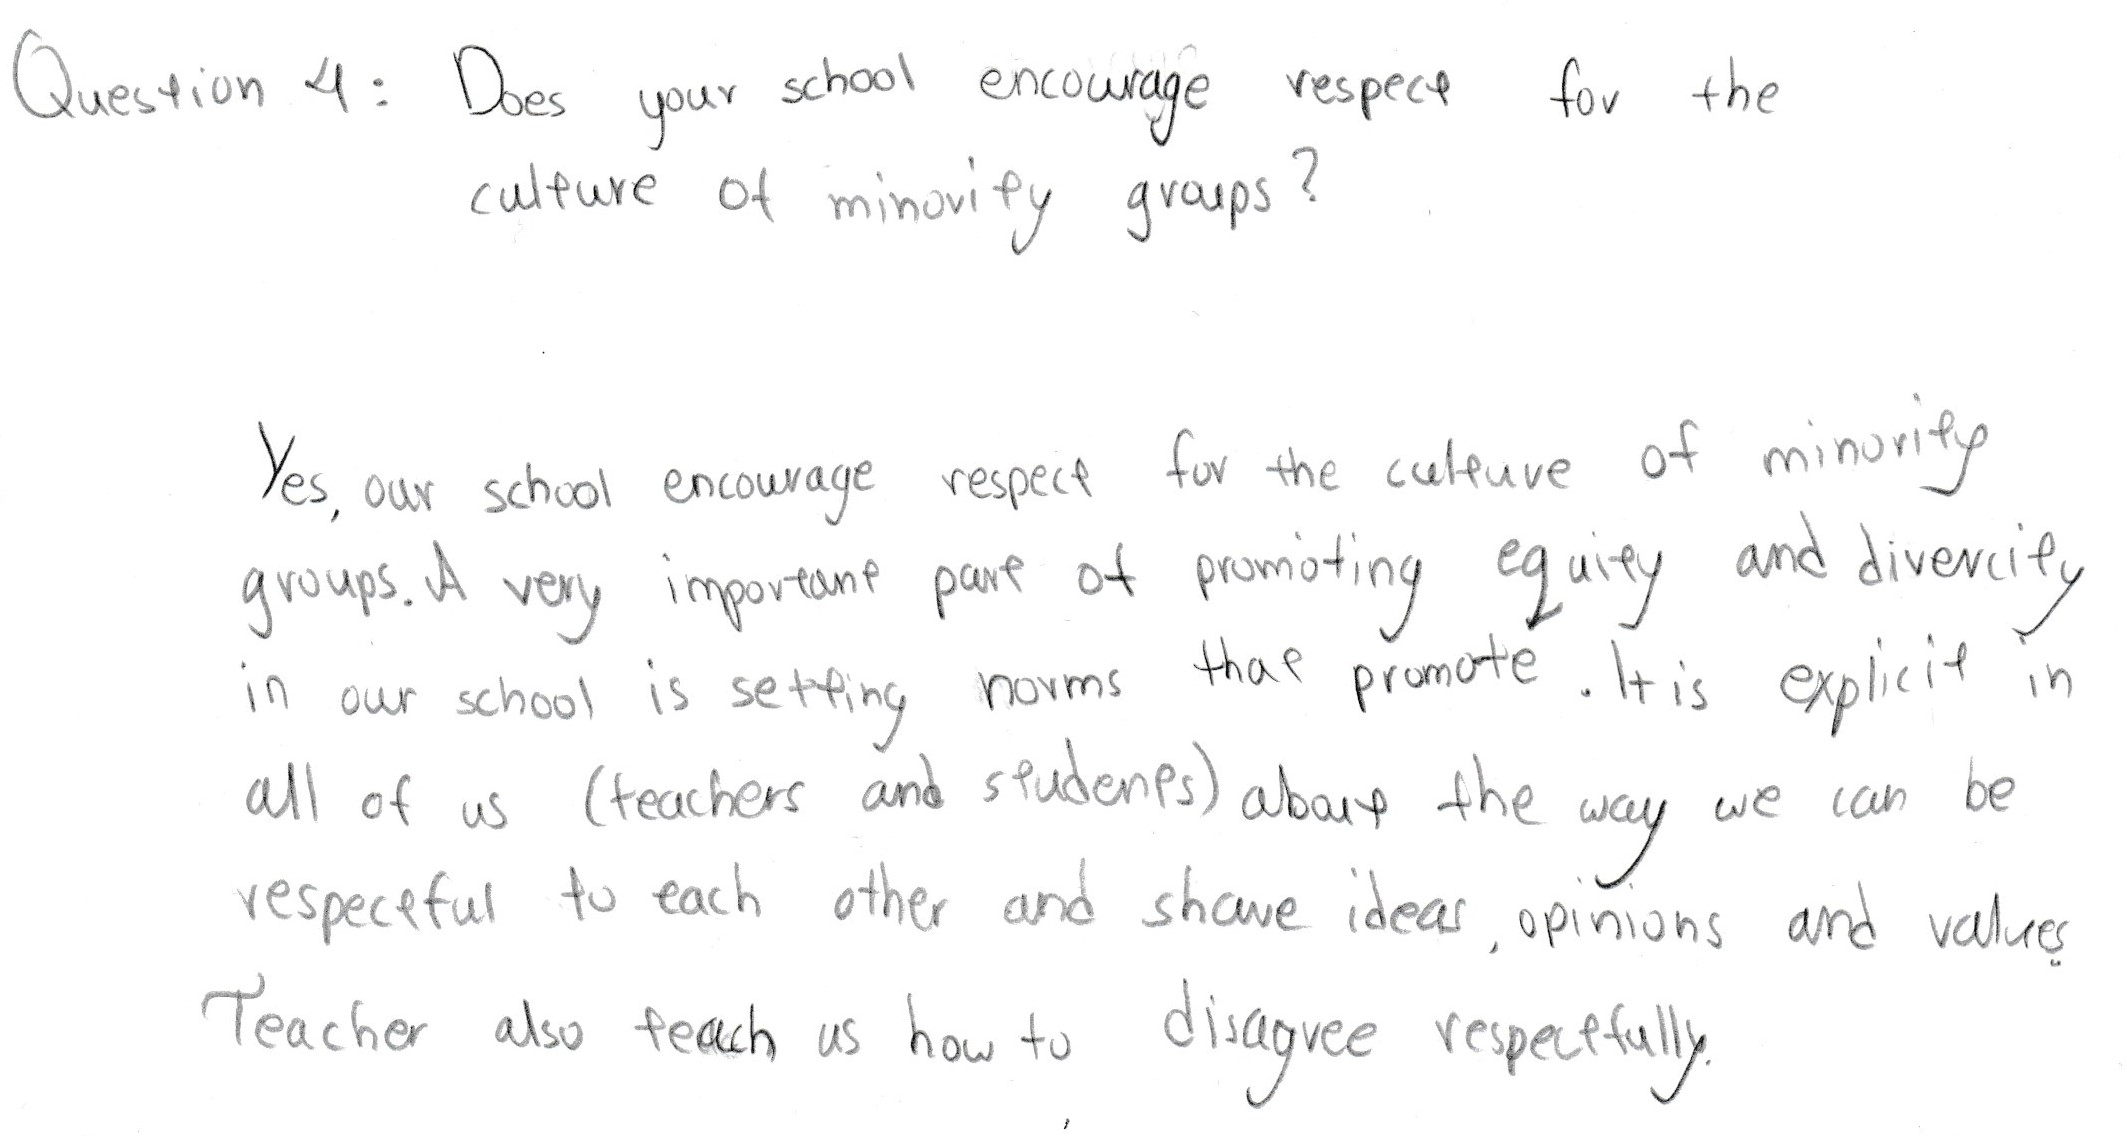 Question 4: Does your school encourage respect for the
culture of minority groups?
Yes, our school encourage respect for the culture of minority
groups. A very important part of promoting equity and divercity
in our school is setting norms that promote. It is explicit in
all of us (teachers and students) about the way we can be
respectful to each other and share ideas, opinions and values.
Teacher also teach us how to disagree respectfully.